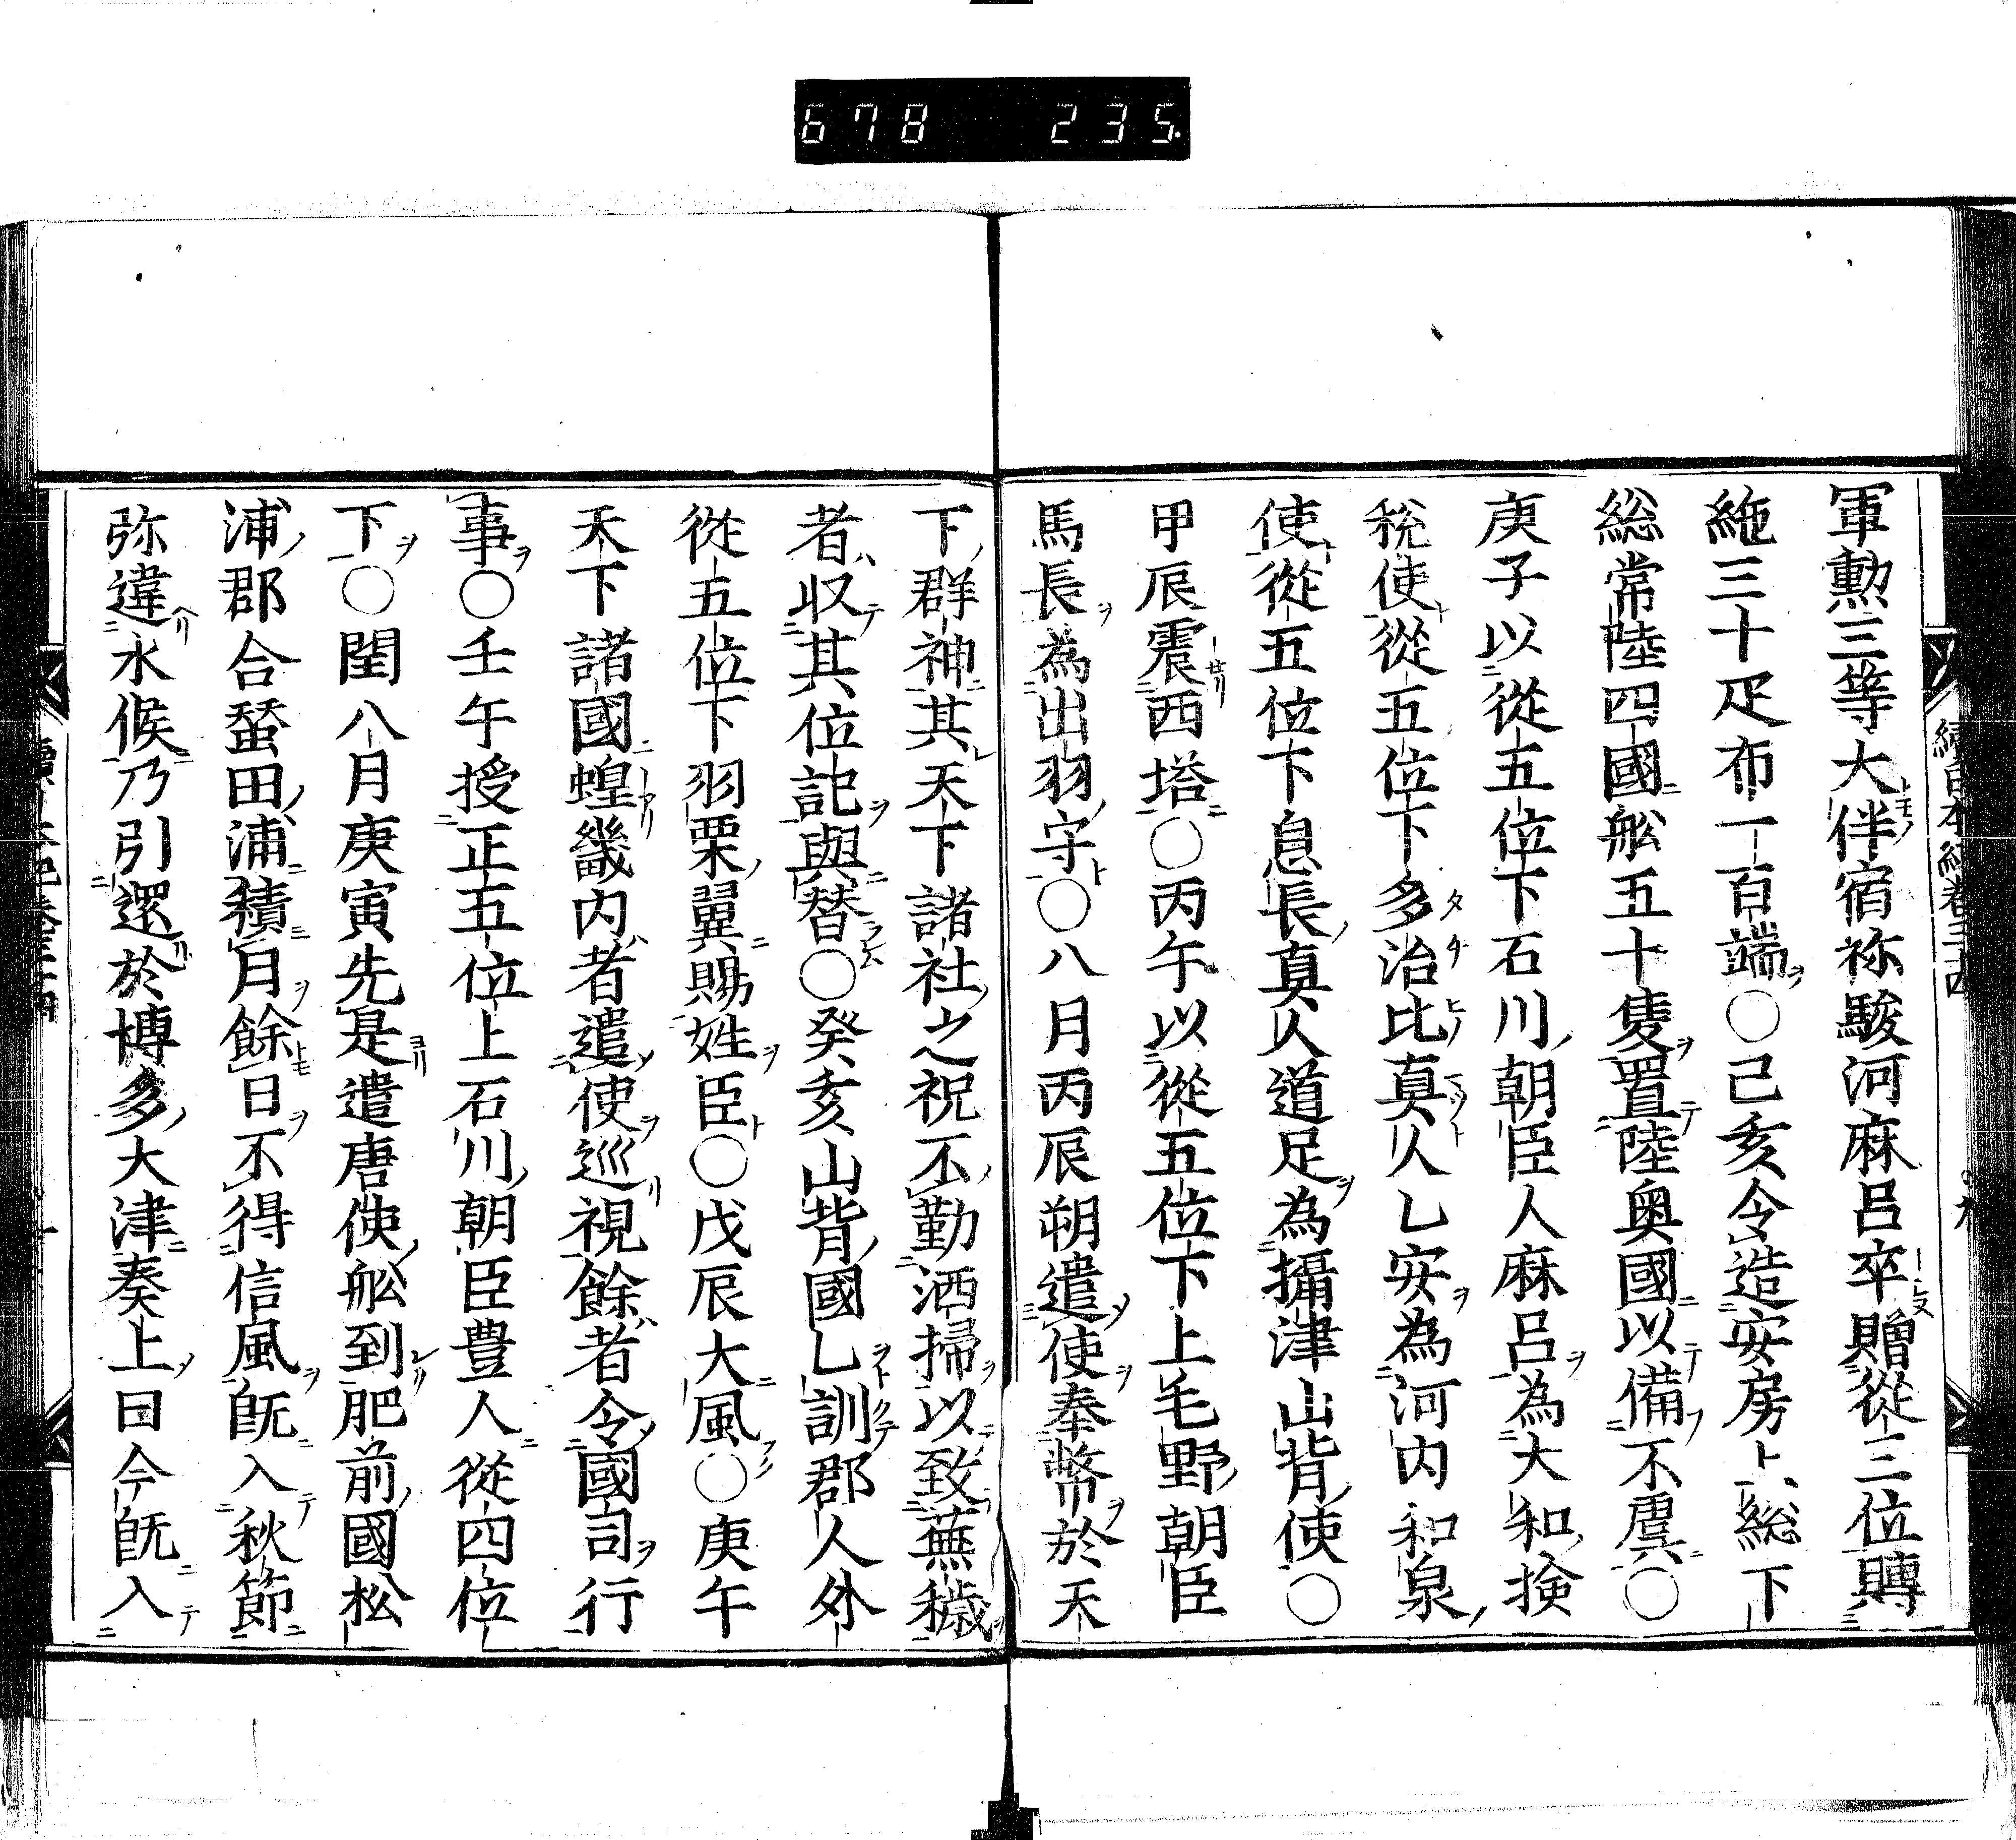 678 235.
軍勲三等大伴宿祢駿河麻呂卒贈從三位賻
絁三十疋布一百端○己亥令造安房上総下
総常陸四國舩五十隻置陸奥國以備不虞○
庚子以從五位下石川朝臣人麻呂為大和検
税使從五位下多治比真人乙安為河内和泉
使從五位下息長真人道足為攝津山背使○
甲辰震西塔○丙午以從五位下上毛野朝臣
馬長為出羽守○八月丙辰朔遣使奉幣於天
下群神其天下諸社之祝不勤洒掃以致蕪穢
者収其位記與替○癸亥山背國乙訓郡人外
從五位下羽栗翼賜姓臣○戊辰大風○庚午
天下諸國蝗畿内者遣使巡視餘者令國司行
事○壬午授正五位上石川朝臣豊人從四位
下○閏八月庚寅先是遣唐使舩到肥前國松
浦郡合蚕田浦積月餘日不得信風既入秋節
弥違水候乃引還於博多大津奏上曰今既入